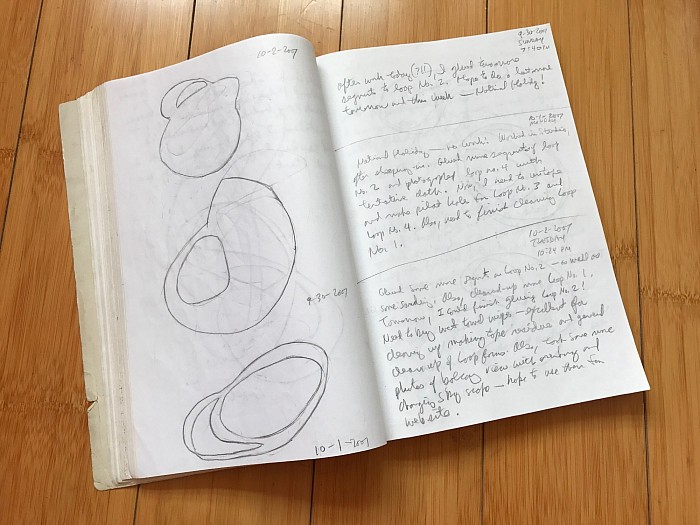 10-2-2007
9-30-2007
10-1-2007
9-30-2007
SUNDAY
after work today (711), I glued tomorrow
segments to loop No. 2. Hope to do a lot more
tomorrow and this week — National Holiday!
10-1-2007
MONDAY
National Holiday — no work! Worked in Studio,
after sleeping-in. Glued more segments of loop
No. 2 and photographed loop no. 4 with
tentative cloth. Now, I need to
and make pilot holes for Loop No. 3 and
Loop No. 4. Also, need to finish cleaning Loop
No. 1.
10-2-2007
TUESDAY
10:24 PM
Glued some more segments on Loop No. 2 — as well as
some sanding. Also, cleaned-up more Loop No. 1.
Tomorrow, I could finish gluing Loop No. 2!
Need to buy wet towel wipes — excellent for
cleaning up masking tape residue and general
clean up of Loop forms. Also, took some more
photos of balcony view with evening and
changing sky scape — hope to use them for
website.